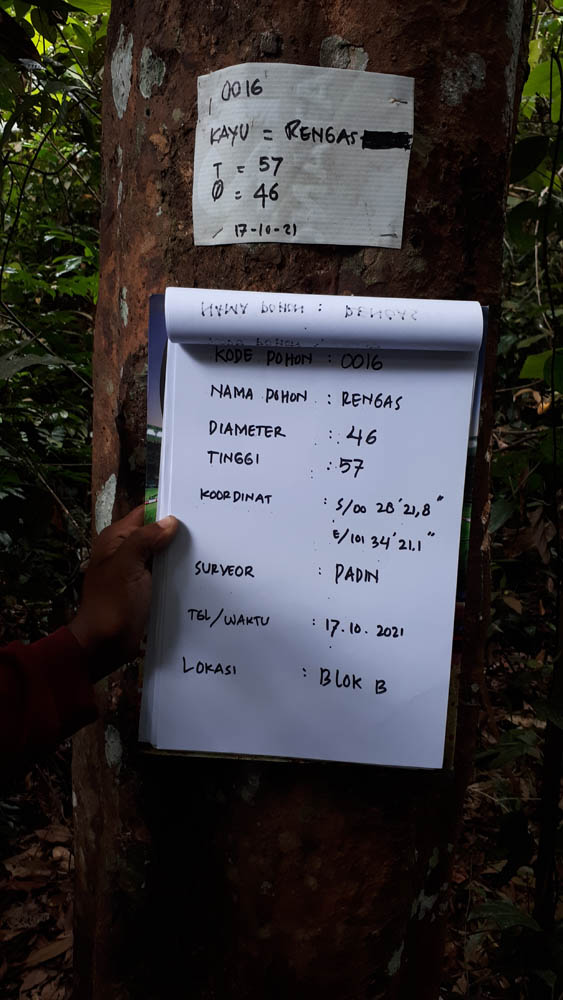 0016
KAYU = RENGAS
T = 57
Ø = 46
17-10-21
NAMA POHON : RENGAS
KODE POHON : 0016
NAMA POHON : RENGAS
DIAMETER : 46
TINGGI : 57
KOORDINAT : S/00 28'21,8"
E/101 34'21.1"
SURVEOR : PADIN
TGL/WAKTU : 17.10.2021
LOKASI : BLOK B